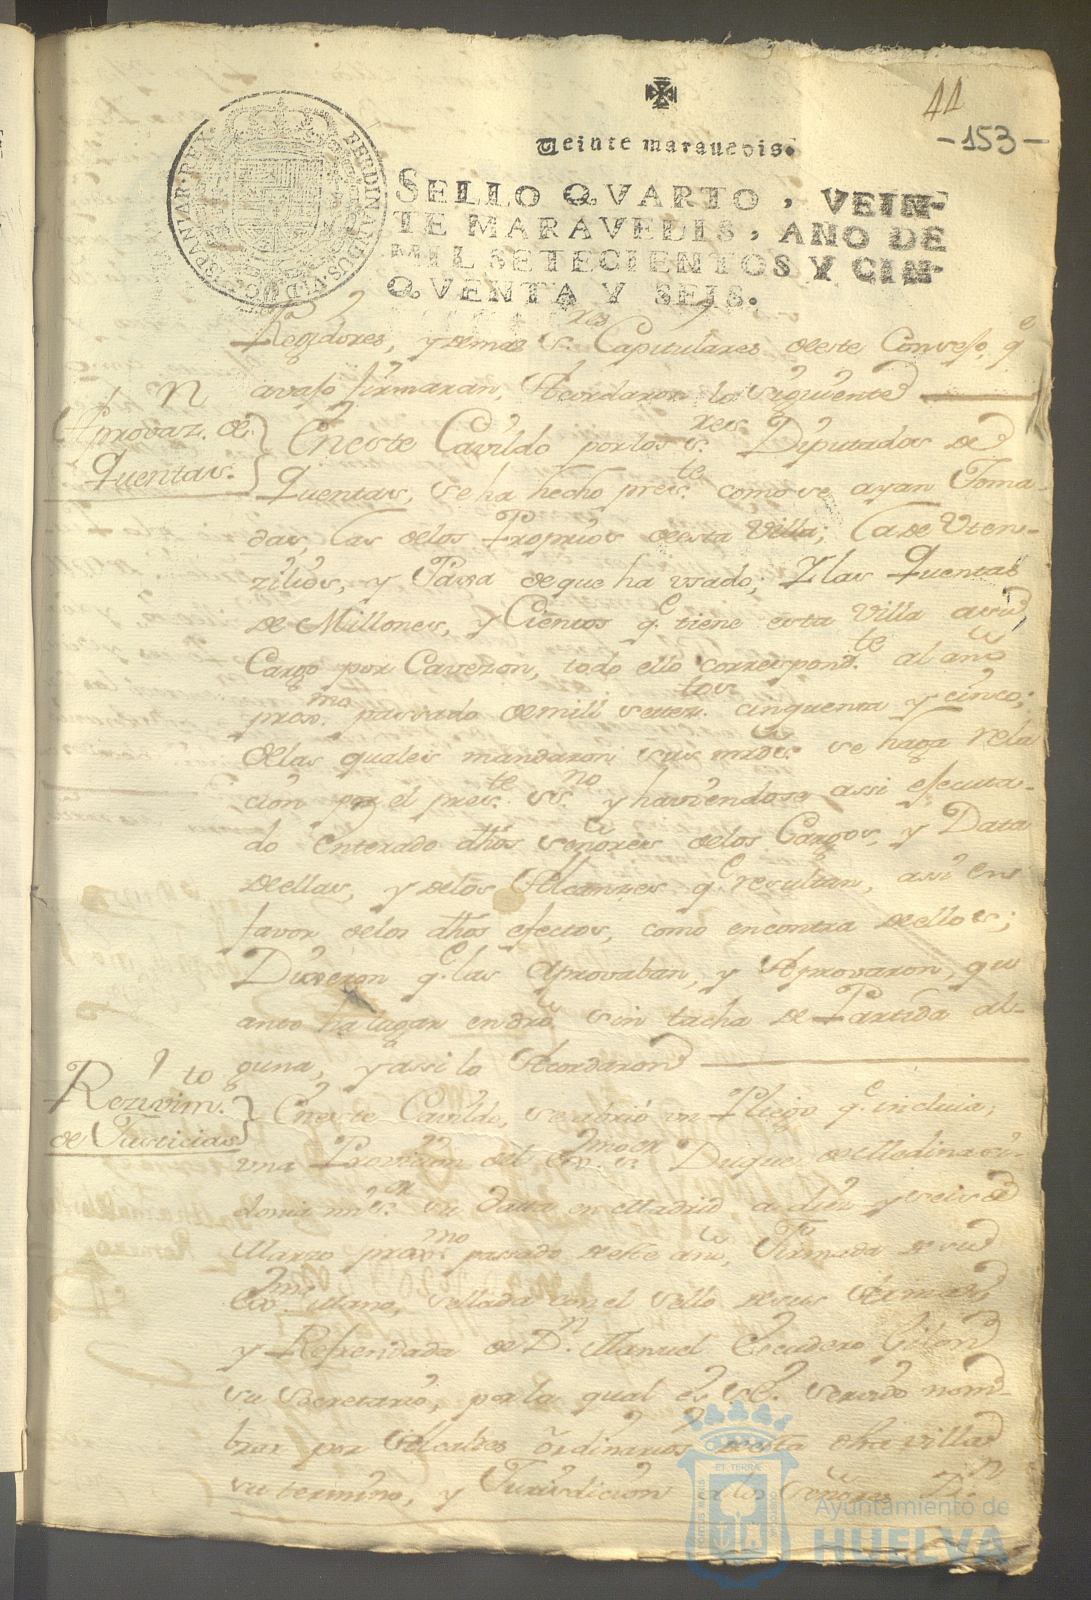 44
-153-
Veinte maravedis.
SELLO QVARTO, VEIN-
TE MARAVEDIS, AÑO DE
MIL SETECIENTOS Y CIN-
QVENTA Y SEIS.
FERDINANDUS VI D G HISPANIAR REX
Regidores, y demas s.res Capitulares deeste Consejo, q.e
avajo firmaran, Acordaron lo siguiente
Aprovaz.n de
Quentas.
Eneste Cavildo porlos s.res Diputados de
Quentas, se ha hecho pres.te como se ayan Toma
das, las delos Propios deesta Villa; la de Uten-
zilios, y Paxa deque ha usado; Y las Quentas
de Millones, y Cientos q.e tiene esta Villa asu
Cargo por Cavezon, todo ello correspond.te al año
prox.mo passado demill settez.tos cinquenta y cinco;
delas quales mandaron sus mrds. se haga rela
cion por el pres.te ss.no y haviendose assi executa-
do Enterado dhos señores delos Cargos, y Data
deellas, y delos Alcanzes q.e resultan, asi en
favor delos dhos efectos, como encontra deellos;
Dixeron q.e las Aprovaban, y Aprovaron, qu
anto ha lugar endro sin tacha de Partida al-
guna, y assi lo Acordaron
Rezivim.to
de Justicias
Eneste Cavildo, se abrio un Pliego q.e incluia,
una Provision del Ex.mo s.or Duque de Medinasi-
donia mi s.or su data en Madrid a diez y seis de
Marzo prox.mo passado deeste año, Firmada de su
Ex.ma Mano, sellada con el sello de sus Armas
y Refrendada de D.n Manuel Escudero Gilon
su Secretario, por la qual es servido nom-
brar por Alcaldes ordinarios deesta dha villa
su termino, y Jurisdicion a los Señores D.n
ET TERRAE
Ayuntamiento de
HUELVA